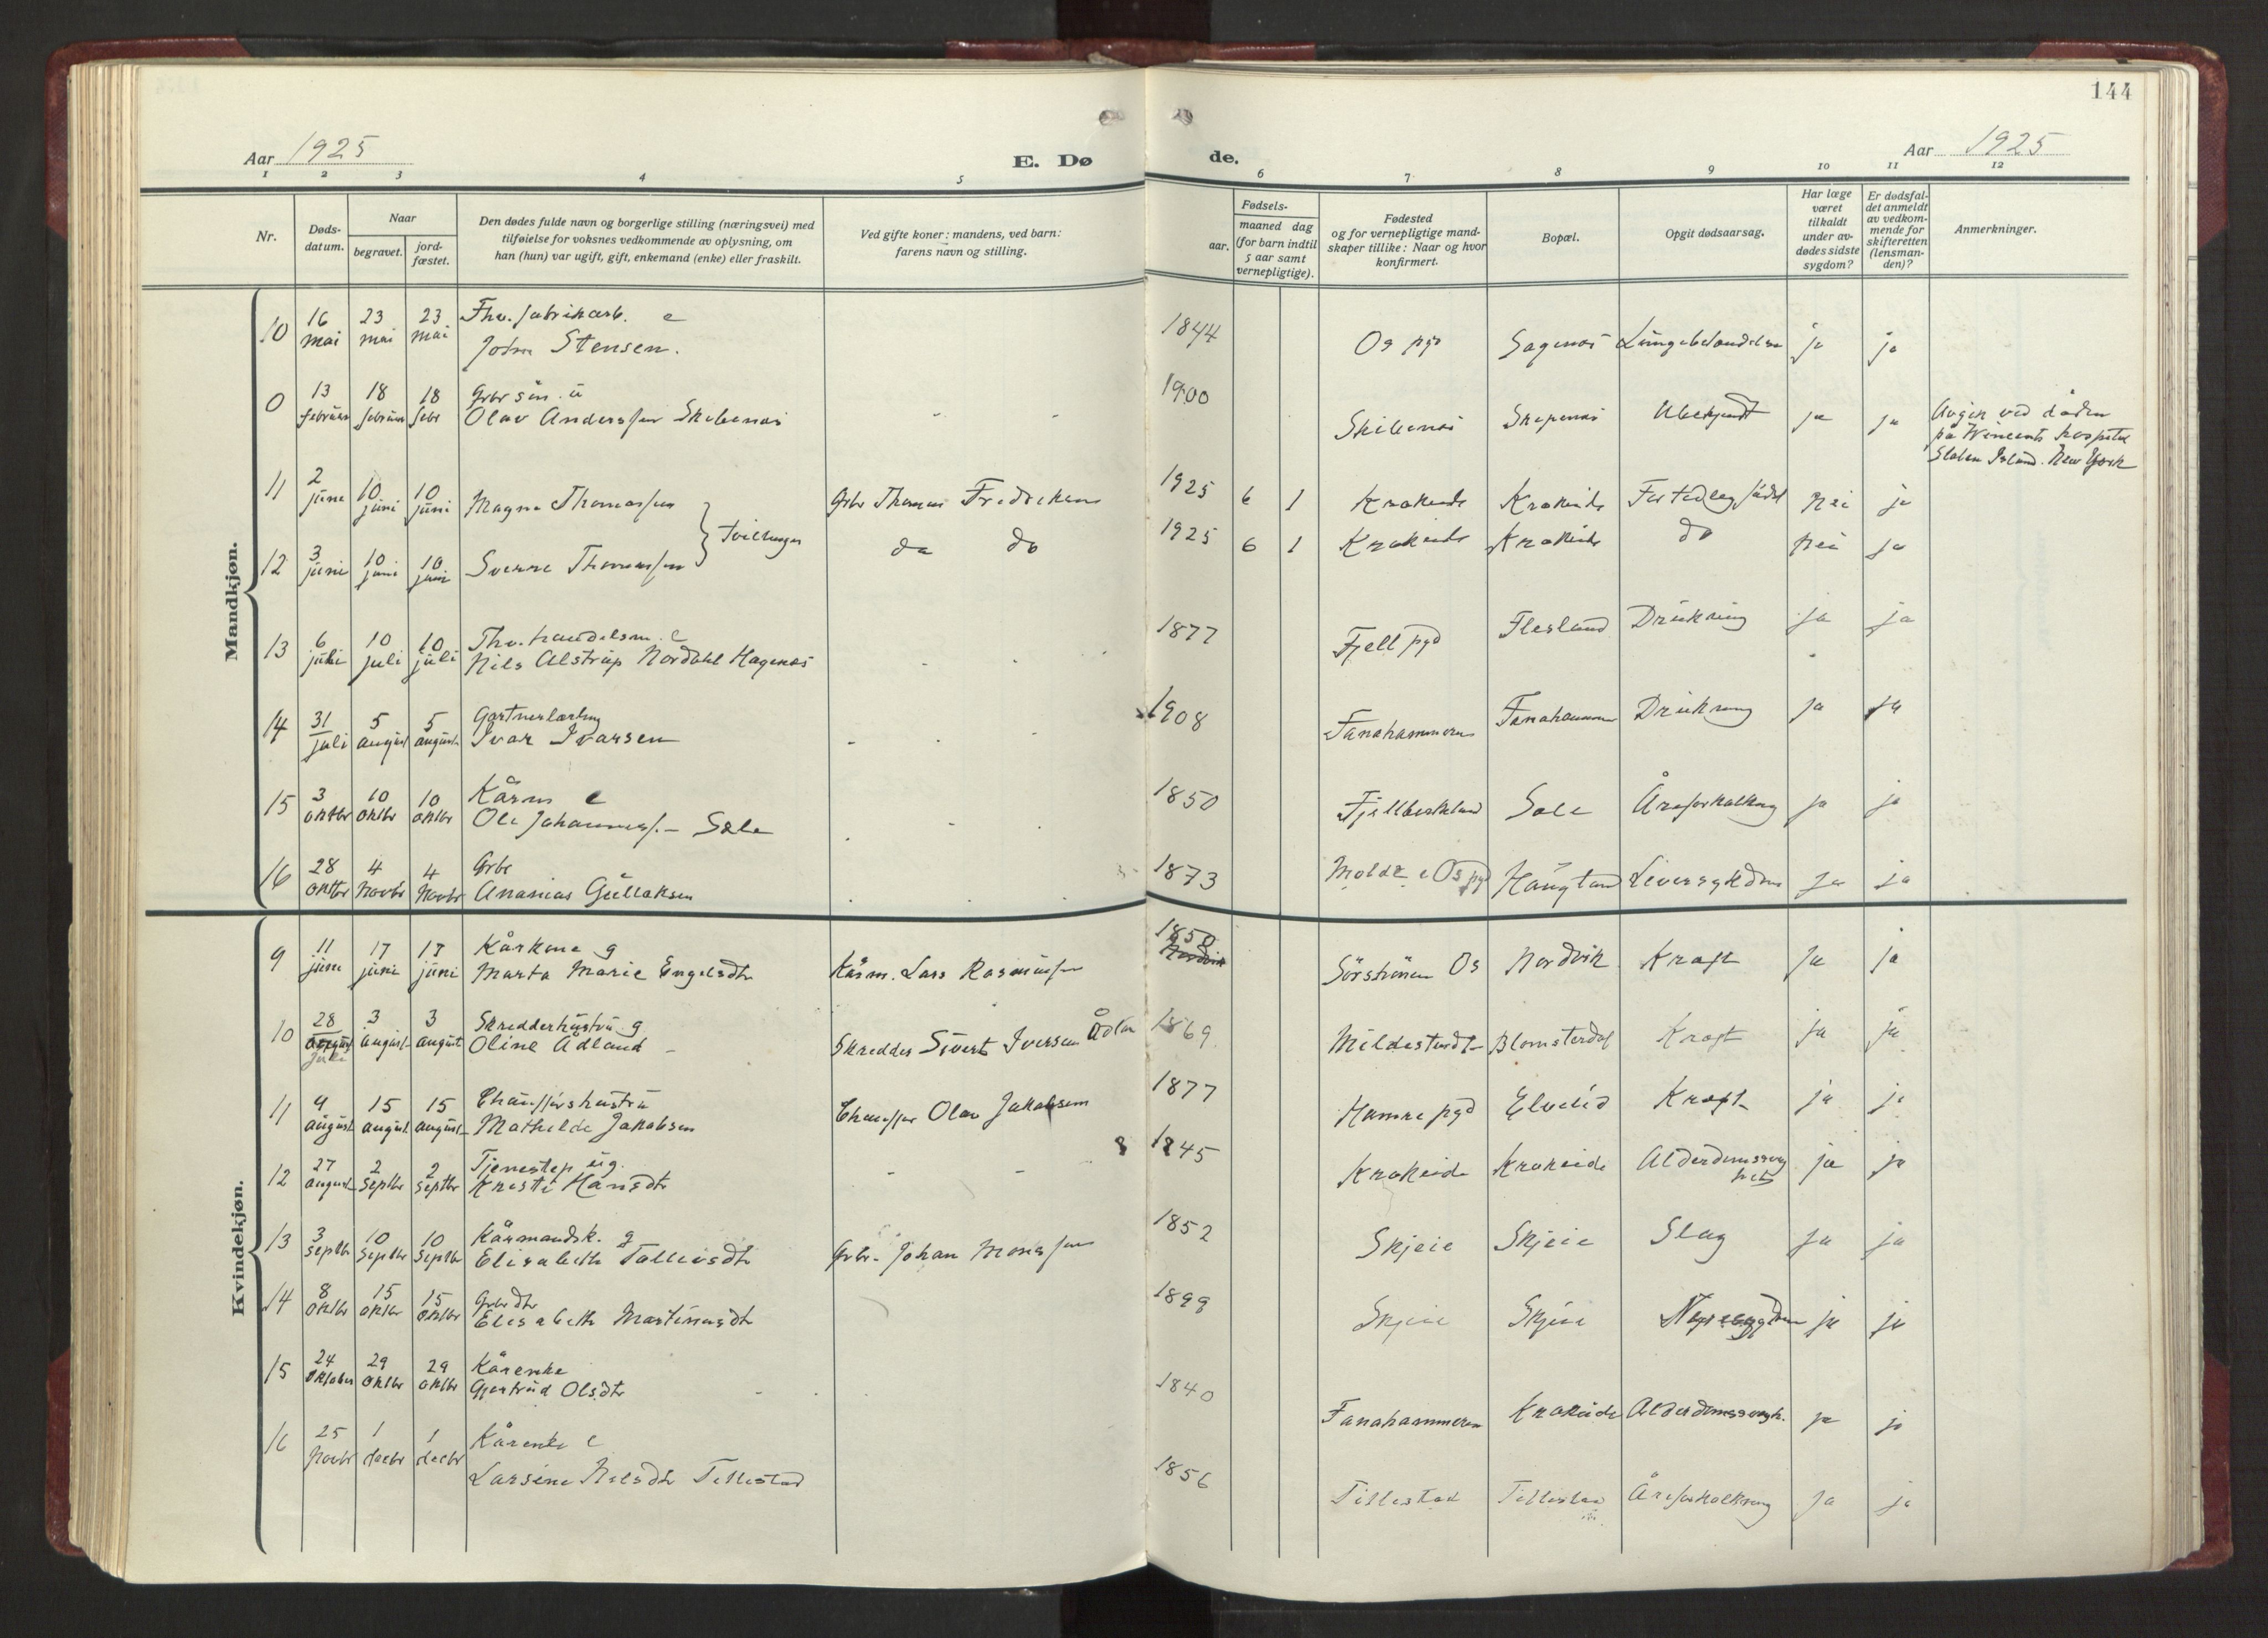 144
Aar 1925
E. Dø
de.
Aar 1925
1 2 3 4 5 6 7 8 9 10 11 12
Nr.
Døds-
datum.
Naar
begravet.
jord-
fæstet.
Den dødes fulde navn og borgerlige stilling (næringsvei) med
tilføielse for voksnes vedkommende av oplysning, om
han (hun) var ugift, gift, enkemand (enke) eller fraskilt.
Ved gifte koner: mandens, ved barn:
farens navn og stilling.
Fødsels-
aar.
maaned dag
(for barn indtil
5 aar samt
vernepligtige).
Fødested
og for vernepligtige mand-
skaper tillike: Naar og hvor
konfirmert.
Bopæl.
Opgit dødsaarsag.
Har læge
været
tilkaldt
under av-
dødes sidste
sygdom?
Er dødsfal-
det anmeldt
av vedkom-
mende for
skifteretten
(lensman-
den)?
Anmerkninger.
Mandkjøn.
10 16 mai 23 mai 23 mai Fhv. fabrikarb. e
Stensen. 1844 Os pgd Lungebetændelse ja ja
0 13 februar 18 februar 18 febr Grbr sön. u
Olav Anderssen Skibenes - - 1900 Skibenes Ubekjendt ja ja Avgik ved døden
på Wincents hospital
Staten Island. New York
11 2 june 10 juni 10 juni Magne Thomassen Grbr Thomas Fredriksen 1925 6 1 Krokeide Krokeide For tidlig født nei ja
Tvillinger
12 3 juni 10 juni 10 juni Sverre Thomassen do do 1925 6 1 Krokeide Krokeide do nei ja
13 6 juli 10 juli 10 juli Fhv. handelsm. e
Nils Alstrup Nordahl Hagenes - - - 1877 Fjell pgd Flesland Drukning ja ja
14 31 juli 5 august 5 august Gartnerlærling
Ivar Ivarsen - - - 1908 Fanahammeren Fanahammeren Drukning ja ja
15 3 oktbr 10 oktbr 10 oktbr Kårm e
Ole Johanness. - Søle - - - 1850 Søle Åreforkalkning ja ja
16 28 oktbr 4 Novbr 4 Novbr Grbr
Ananias Gullaksen 1873 Molde i Os pgd Leversykdom ja ja
Kvindekjøn.
9 11 june 17 juni 17 juni Kårkone g
Marta Marie Engelsdtr Kårm. Lars Rasmussen 1850 Os Nordvik Kræft ja ja
10 28 juli 3 august 3 august Skredderhustru g
Oline Ådland - Skredder Sivert Iversen Ådlan 1869 Blomsterdal Kræft ja ja
11 9 august 15 august 15 august Chaufførshustru
Mathilde Jakobsen Chauffør Olav Jakobsen 1877 Hamre pgd Elveid Kræft ja ja
12 27 august 2 septbr 2 septbr Tjenestep ug.
Kristi Hansdtr - - 1845 Krokeide Krokeide Alderdomssvag
het ja ja
13 3 septbr 10 septbr 10 septbr Kårmandsk. g
Elisabeth Talleivsdtr Grbr. Johan Monssen 1852 Skjeie Skjeie Slag ja ja
14 8 oktbr 15 oktbr 15 oktbr Grbrdtr
Elisabeth Martinusdtr 1899 Skjeie Skjeie ja ja
15 24 oktober 29 oktbr 29 oktbr Kårenke
Gjertrud Olsdtr - 1840 Fanahammeren Krokeide Alderdomssvagh. ja ja
16 25 Novbr 1 decbr 1 decbr Kårenke e
Larsine Nelsdtr Tillestad 1856 Tillestad Tillestad Åreforkalkning ja ja